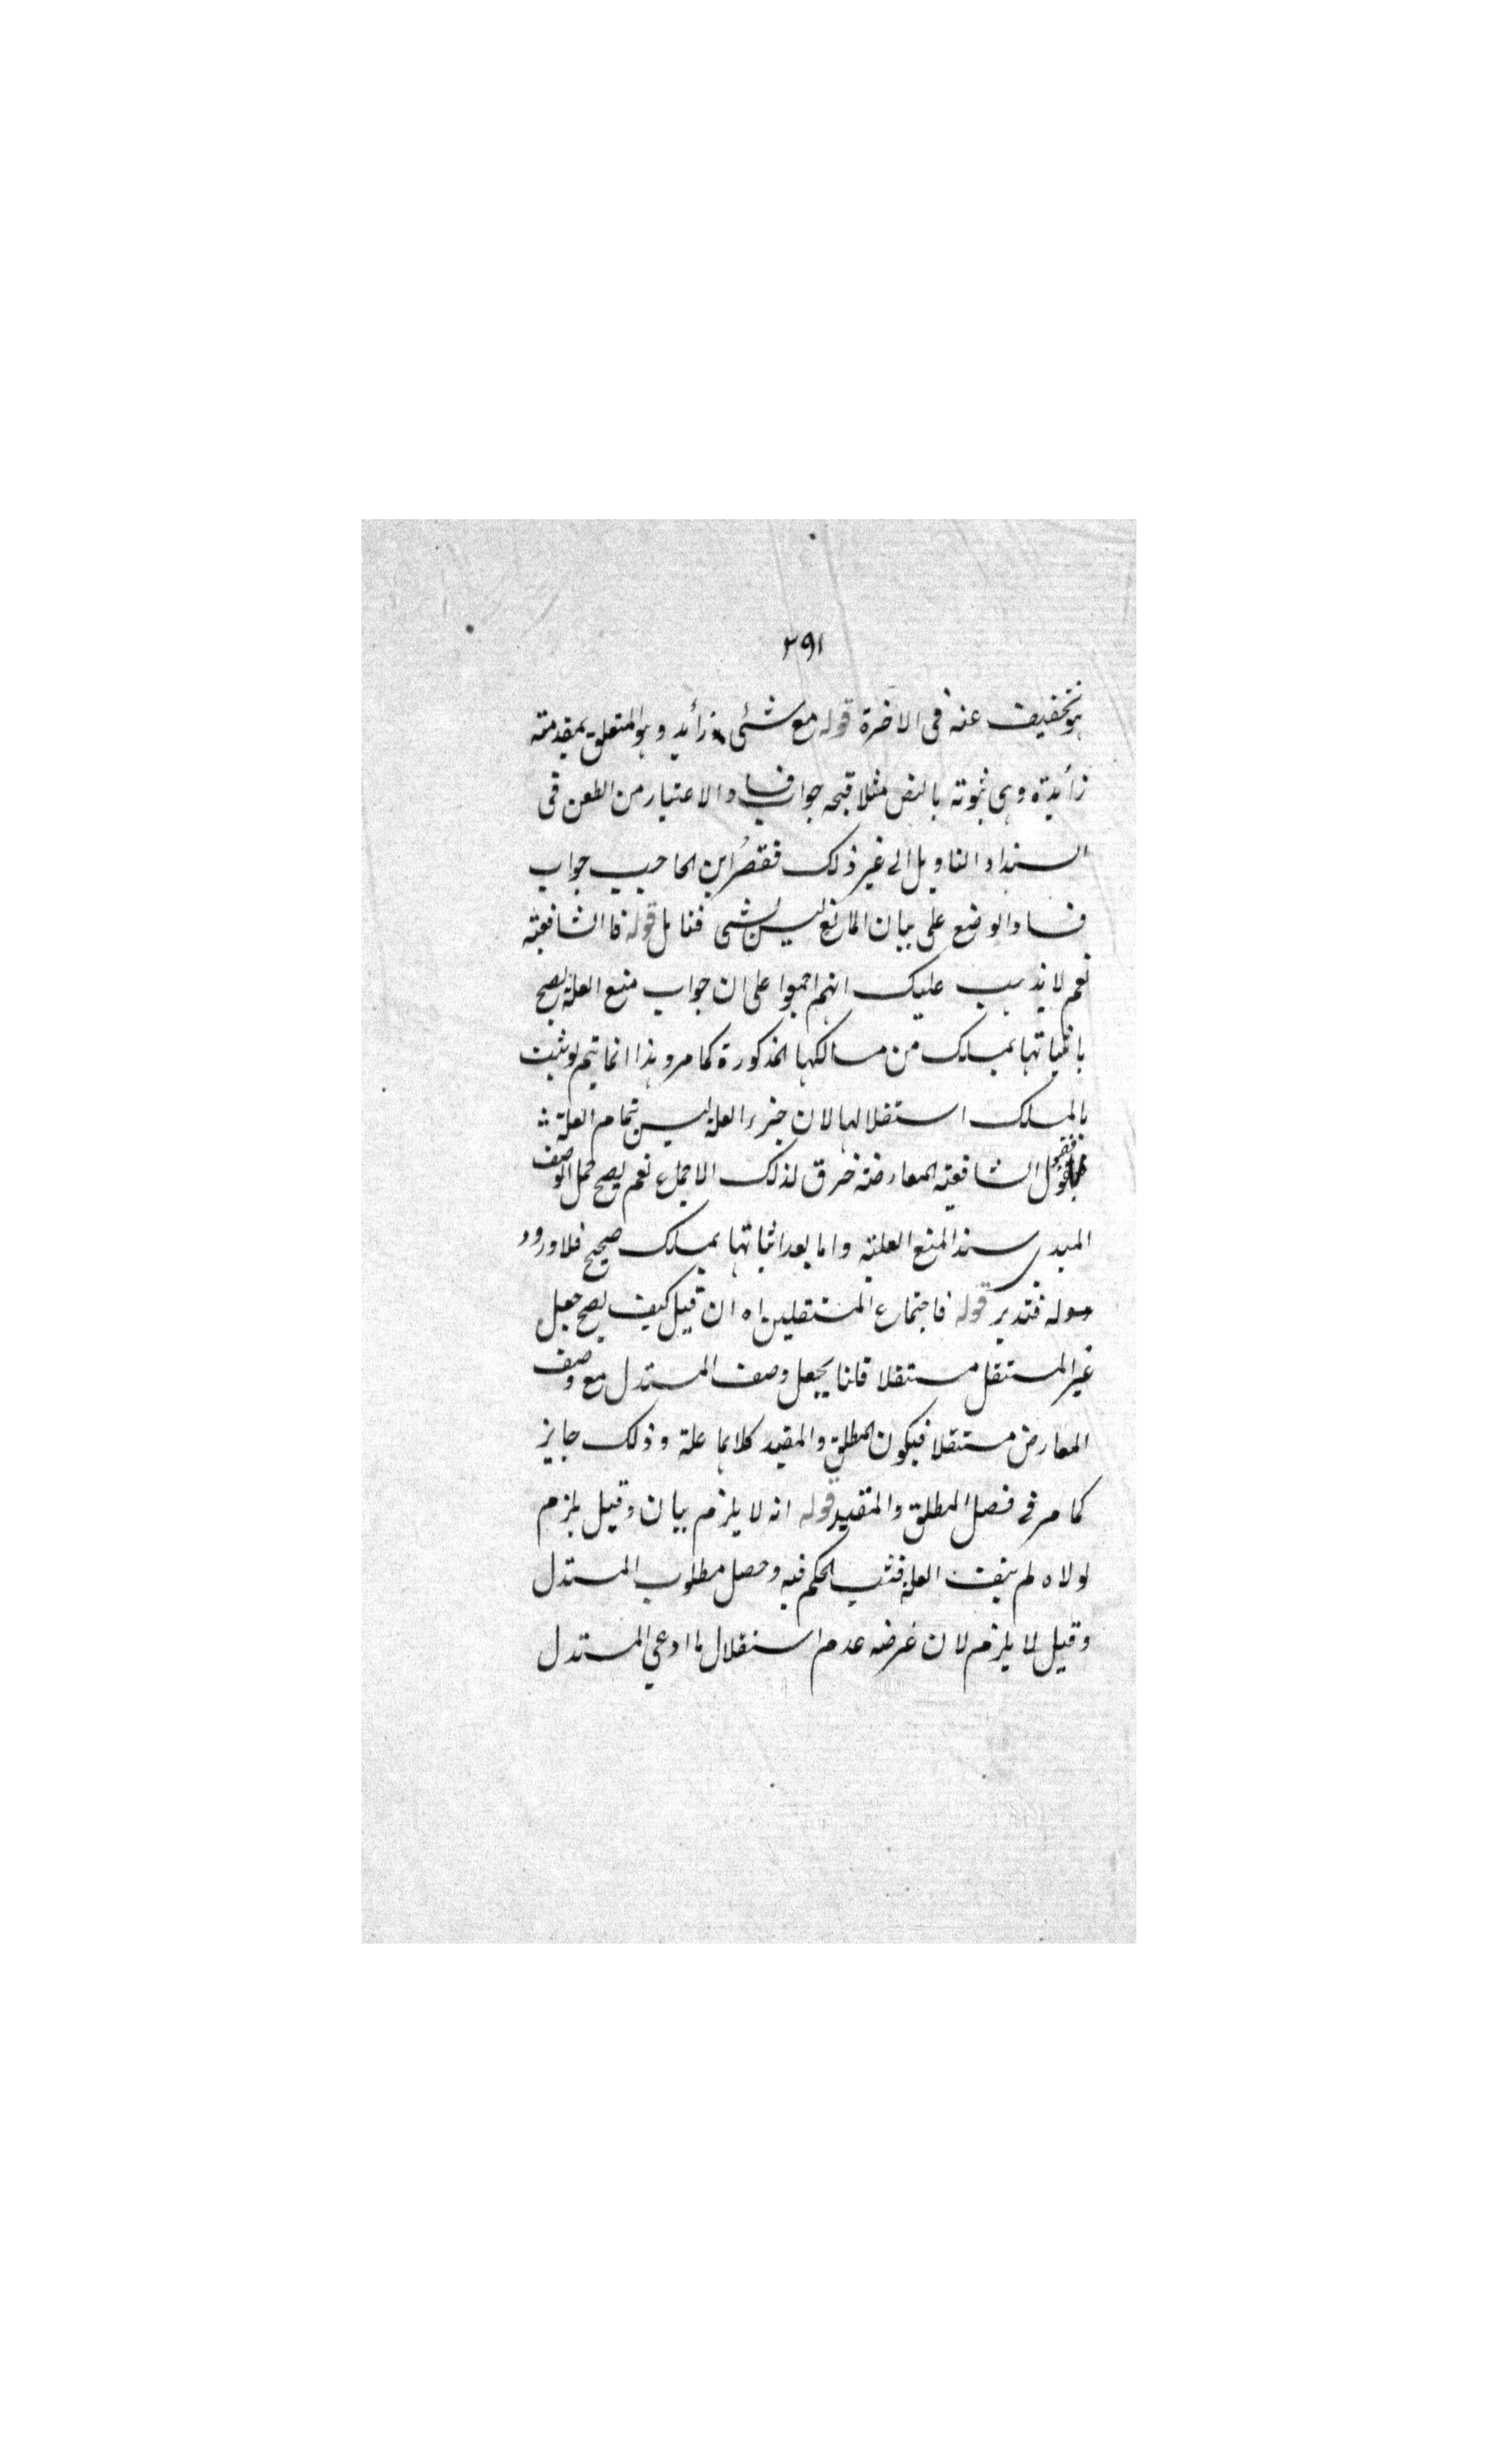 ٢٩١
هو تخفيف عنه فى الاخرة قوله مع شئى زأيد وهو المتعلق بمقدمته
زأيدة وهى ثبوته بالنص مثلا قبحه جواب فساد الاعتبار من الطعن فى
السند او التاويل الى غير ذلك فقصر ابن الحاجب جواب
فساد الوضع على بيان المانع ليس بشى فتامل قوله فا الشافعية
نعم لا يذهب عليك انهم اجمعوا على ان جواب منع العلة يصح
باثباتها بمسلك من مسالكها المذكورة كما مر وهذا انما يتم لو يثبت
بالمسلك استقلالها لان جزء العلة ليس تمام العلة
فقبول الشافعية المعارضة خرق لذلك الاجماع نعم يصح حمل الوصف
المبدى سند المنع العلية واما بعد اثباتها بمسلك صحيح فلا ورود
له فتدبر قوله فاجتماع المستقلين اه ان قيل كيف يصح جعل
غير المستقل مستقلا قلنا يجعل وصف المستدل مع وصف
المعارض مستقلا فيكون المطلق والمقيد كلاهما علة وذلك جايز
كما مر فى فصل المطلق والمقيد قوله انه لا يلزم بيان وقيل يلزم
لولاه لم ينتف العلة فثبت الحكم فيه وحصل مطلوب المستدل
وقيل لا يلزم لان غرضه عدم استقلال ما ادعى المستدل